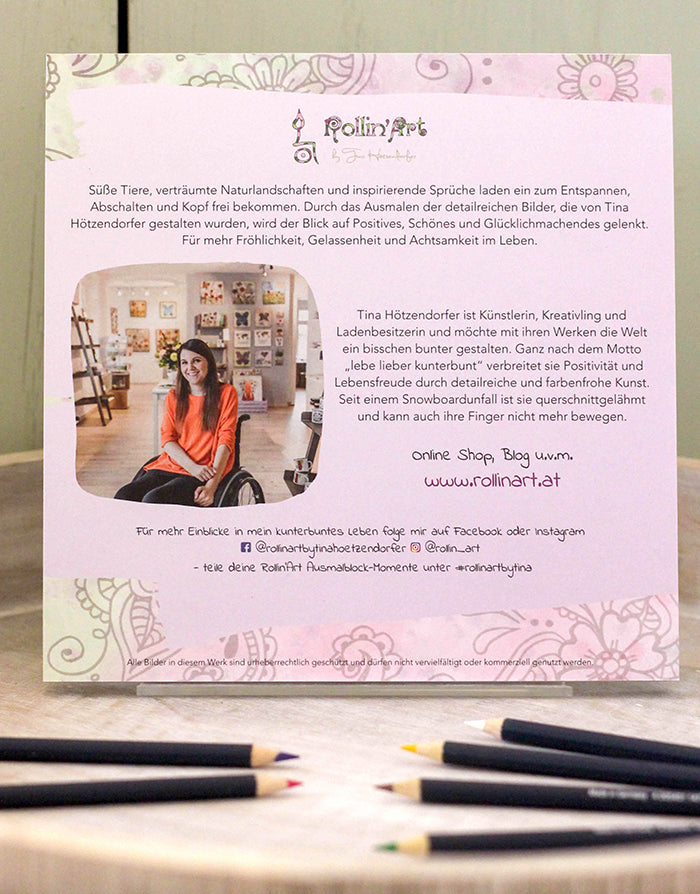 Rollin'Art
by Tina Hötzendorfer
Süße Tiere, verträumte Naturlandschaften und inspirierende Sprüche laden ein zum Entspannen,
Abschalten und Kopf frei bekommen. Durch das Ausmalen der detailreichen Bilder, die von Tina
Hötzendorfer gestalten wurden, wird der Blick auf Positives, Schönes und Glücklichmachendes gelenkt.
Für mehr Fröhlichkeit, Gelassenheit und Achtsamkeit im Leben.
Tina Hötzendorfer ist Künstlerin, Kreativling und
Ladenbesitzerin und möchte mit ihren Werken die Welt
ein bisschen bunter gestalten. Ganz nach dem Motto
„lebe lieber kunterbunt“ verbreitet sie Positivität und
Lebensfreude durch detailreiche und farbenfrohe Kunst.
Seit einem Snowboardunfall ist sie querschnittgelähmt
und kann auch ihre Finger nicht mehr bewegen.
Online Shop, Blog u.v.m.
www.rollinart.at
Für mehr Einblicke in mein kunterbuntes Leben folge mir auf Facebook oder Instagram
@rollinartbytinahoetzendorfer @rollin_art
- teile deine Rollin'Art Ausmalblock-Momente unter #rollinartbytina
Alle Bilder in diesem Werk sind urheberrechtlich geschützt und dürfen nicht vervielfältigt oder kommerziell genutzt werden.